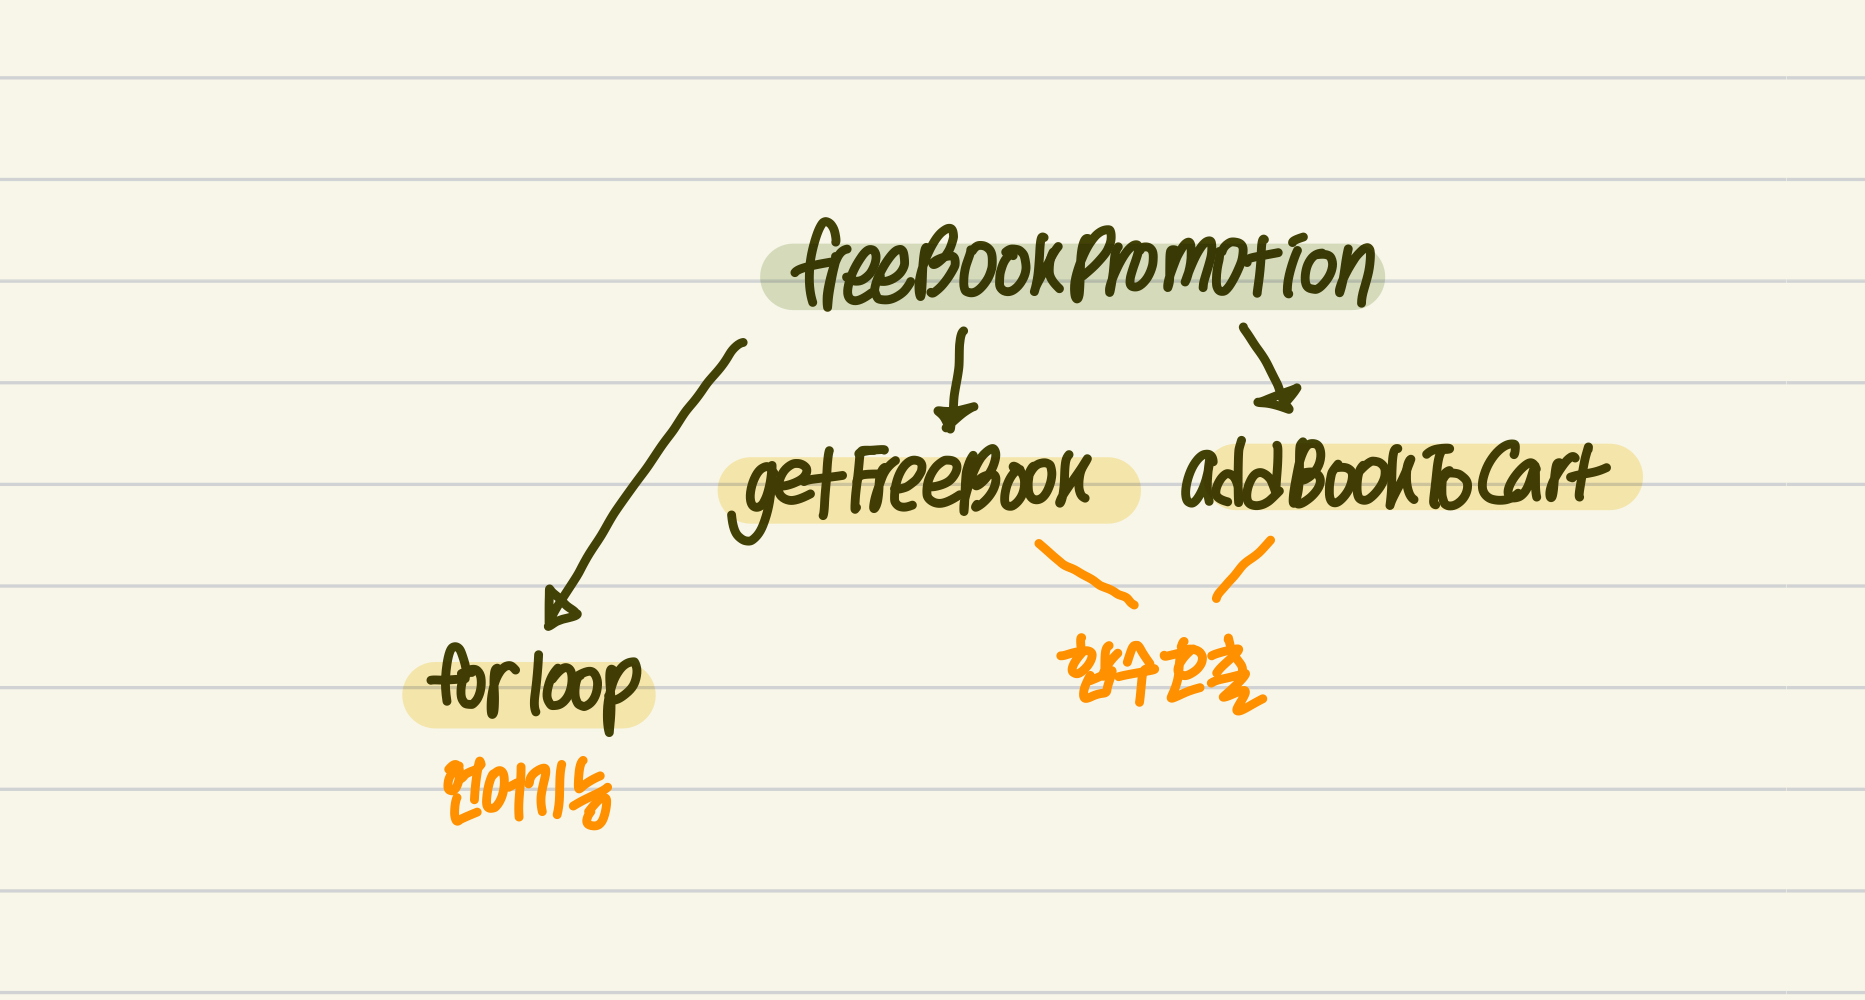 freeBookPromotion
getFreeBook addBookToCart
for loop
함수호출
언어기능